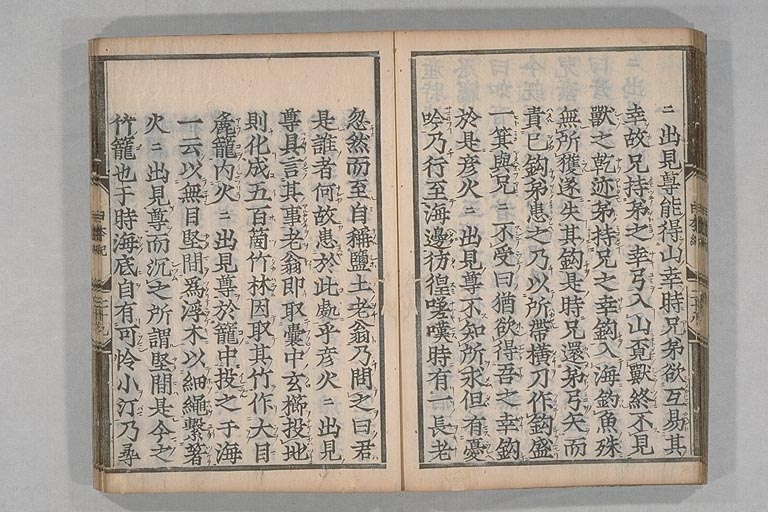 二出見尊能得山幸時兄弟欲互易其
幸故兄持弟之幸弓入山覓獸終不見
獸之乾迹弟持兄之幸鈎入海釣魚殊
無所獲遂失其鈎是時兄還弟弓矢而
責已鈎弟患之乃以所帶横刀作鈎盛
一箕與兄兄不受曰猶欲得吾之幸鈎
於是彦火二出見尊不知所求但有憂
吟乃行至海邊彷徨嗟嘆時有一長老
忽然而至自稱鹽土老翁乃問之曰君
是誰者何故患於此處乎彦火二出見
尊具言其事老翁即取囊中玄櫛投地
則化成五百箇竹林因取其竹作大目
麁籠内火二出見尊於籠中投之于海
一云以無目堅間爲浮木以細繩繫著
火二出見尊而沉之所謂堅間是今之
竹籠也于時海底自有可怜小汀乃尋